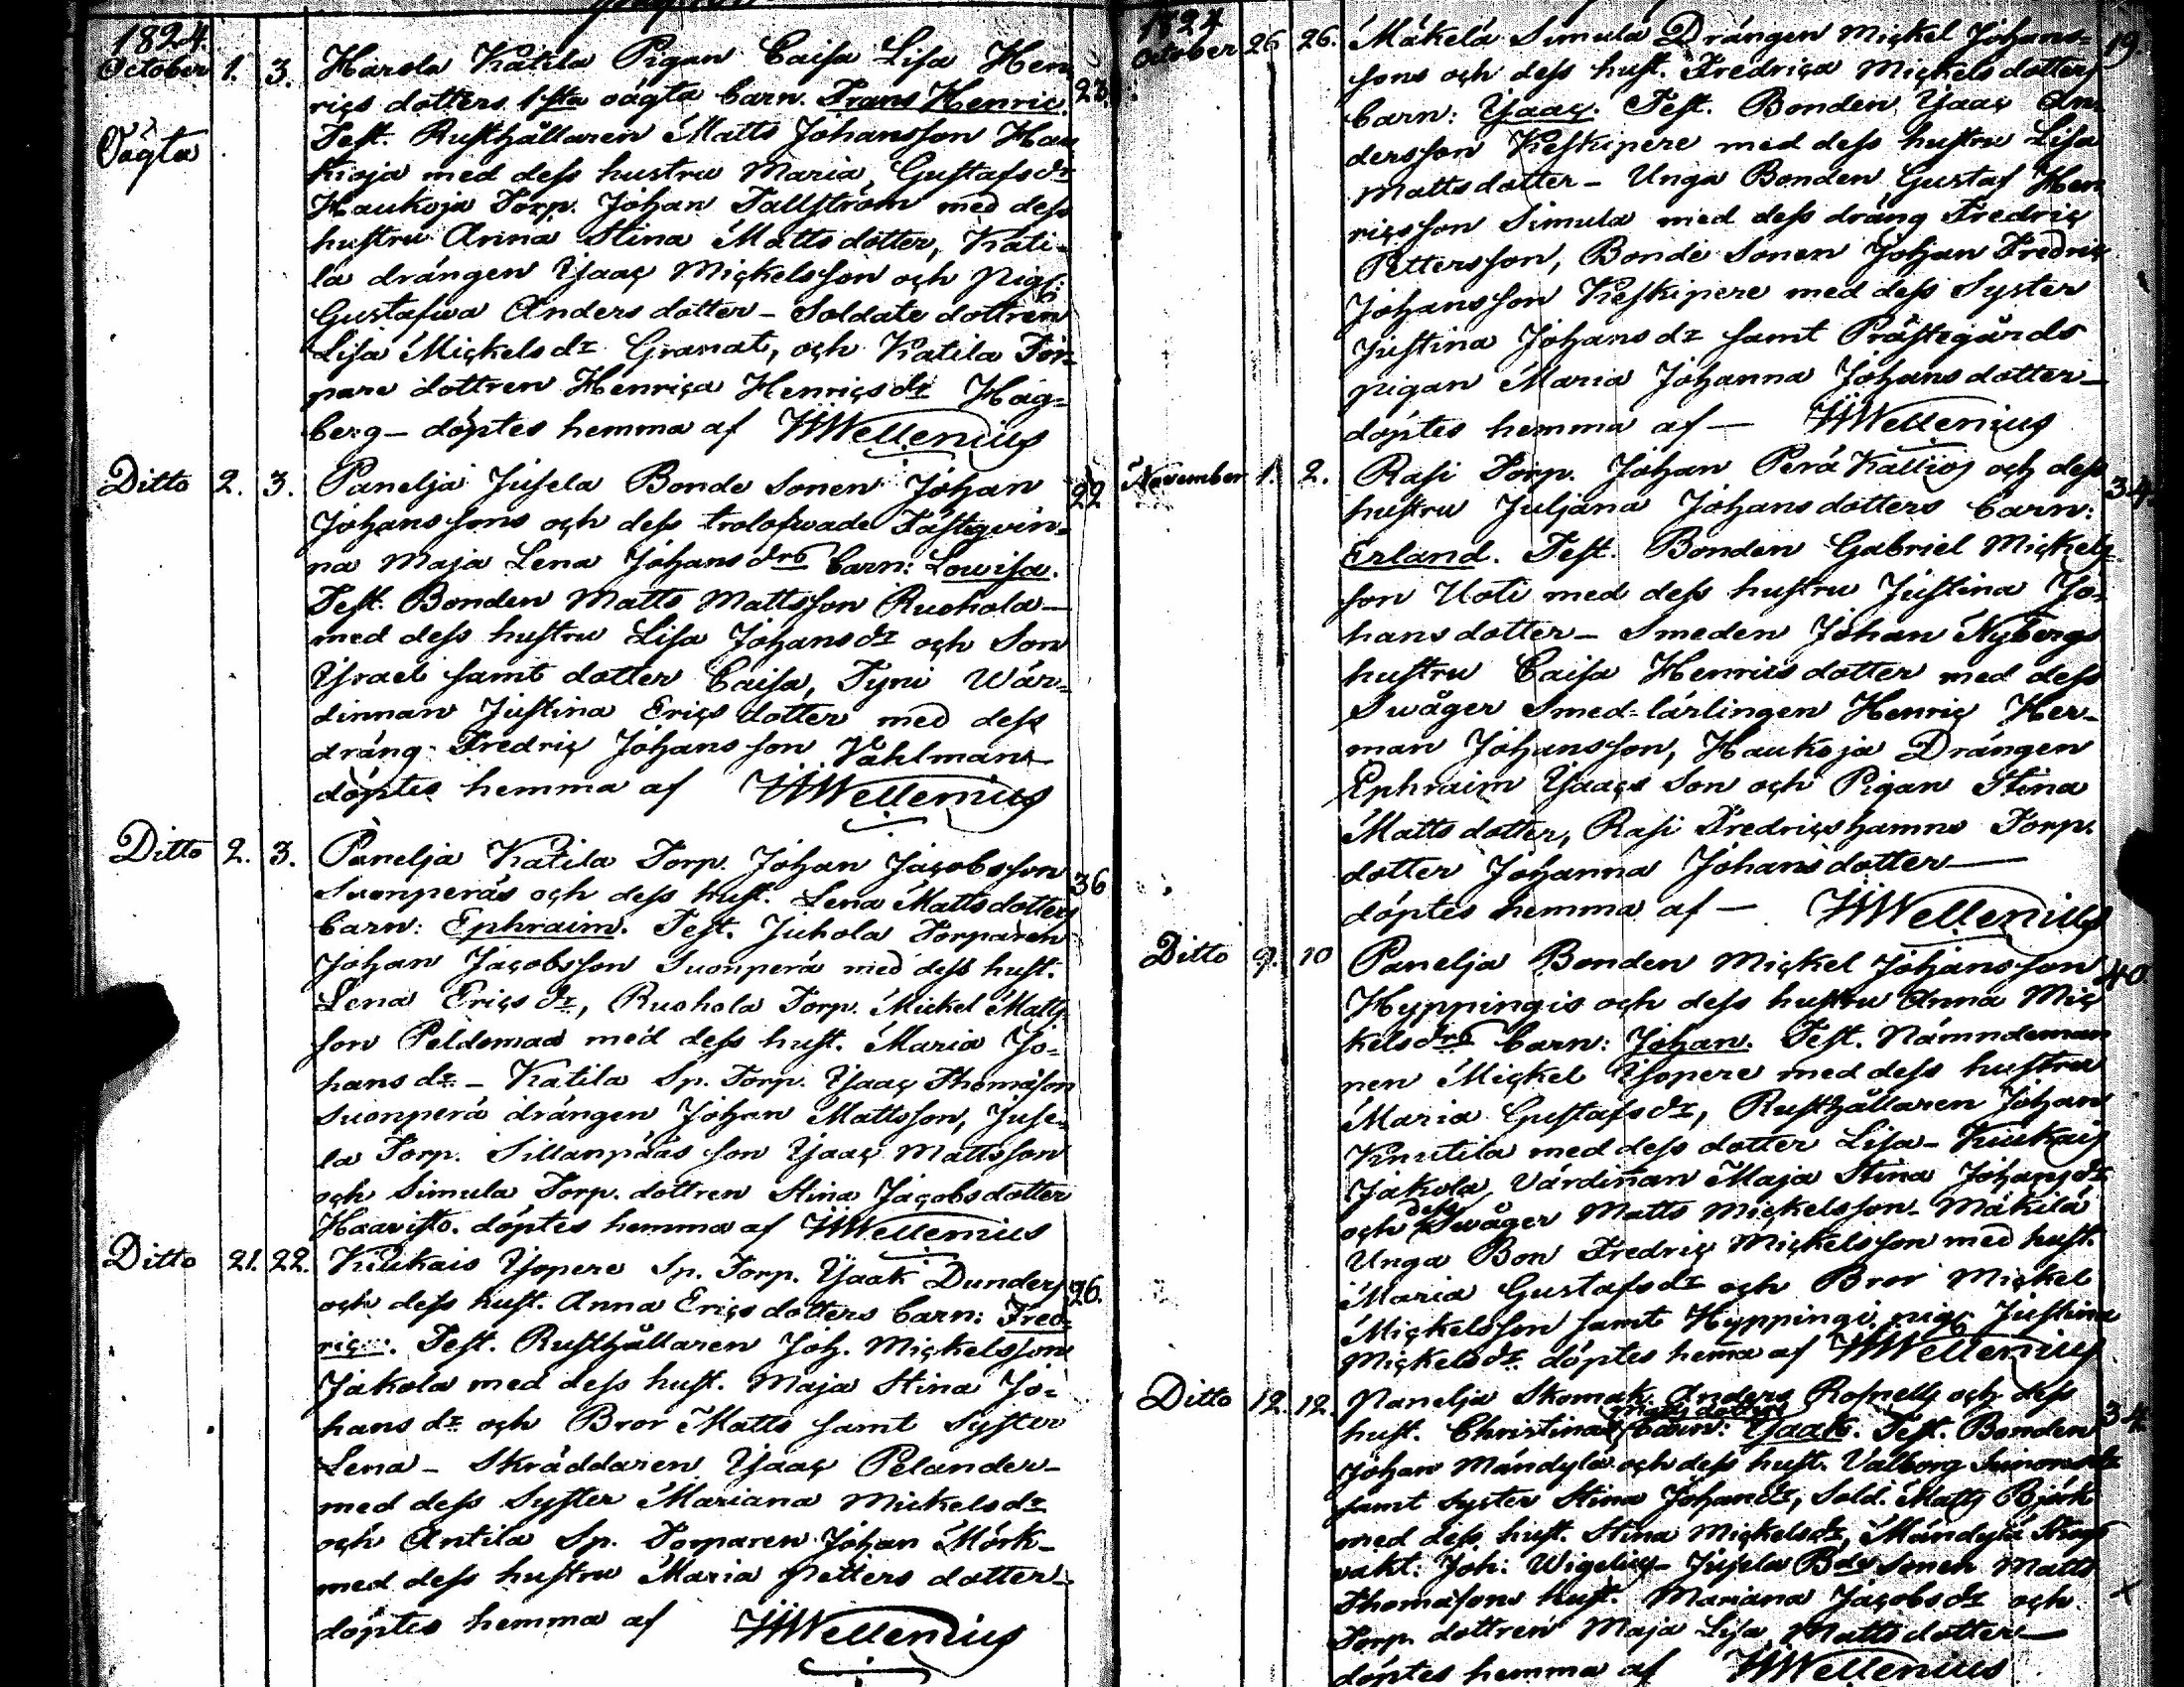 1824.
October 1. 3. Harola Katila Pigan Caisa Lisa Hen
rics dotters 1sta oägta barn. Frans Henric. 23.
Oägta
Test. Rusthållaren Matts Johansson Hau
kioja med dess hustru Maria Gustafs dr
Haukoja Torp. Johan Tallström med dess
hustru Anna Stina Matts dotter, Kati-
la drängen Ysaac Mickelsson och pig:
Gustafwa Anders dotter - Soldate dottren
Lisa Mickels dr Granat, och Katila Tor-
pare dottren Henrica Henrics dr Hag=
berg - döptes hemma af HWellenius
Ditto 2. 3. Panelja Jusela Bonde Sonen Johan 22
Johanssons och dess trolofwade Fästeqvin-
na Maja Lena Johans drs barn: Lowisa.
Test. Bonden Matts Mattsson Ruohola -
med dess hustru Lisa Johans dr och Son
Ysrael samt dotter Caisa, Tyni Wär=
dinnan Justina Erics dotter med dess
dräng Fredric Johansson Vahlman -
döptes hemma af HWellenius
Ditto 2. 3. Panelja Katila Torp. Johan Jacobsson
Suonperäs och dess hust. Lena Matts dotters 36
barn: Ephraim. Test. Juhola Torparen
Johan Jacobsson Suonperä med dess hust.
Lena Erics dr, Ruohola Torp. Mickel Matts
son Peldomaa med dess hust. Maria Jo=
hans dr - Katila Sp. Torp. Ysaac Thomasson
Suonperä drängen Johan Mattsson, Juse-
la Torp. Sillanpääs son Ysaac Mattsson
och Simula Torp. dottren Stina Jacobs dotter
Haavisto. döptes hemma af HWellenius
Ditto 21. 22. Kiukais Ysopere Sp. Torp. Ysaak Dunders
och dess hust. Anna Erics dotters barn: Fred= 26.
ric. Test. Rusthållaren Joh. Mickelsson
Jakola med dess hust. Maja Stina Jo=
hans dr och Bror Matts samt Syster
Lena - Skräddaren Ysaac Pelander -
med dess Syster Mariana Mickels dr
och Antila Sp. Torparen Johan Mörk -
med dess hustru Maria Petters dotter -
döptes hemma af HWellenius
1824
October 26. 26. Mäkelä Simula Drängen Mickel Johans= 19.
sons och dess hust. Fredrica Mickels dotters
barn: Ysaac. Test. Bonden Ysaac An-
dersson Keskipere med dess hustru Lisa
Matts dotter - Unga Bonden Gustaf Hen
ricsson Simula med dess dräng Fredric
Pettersson, Bonde Sonen Johan Fredric
Johansson Keskipere med dess Syster
Justina Johans dr samt Prästegårds
pigan Maria Johanna Johans dotter -
döptes hemma af - HWellenius
November 1. 2. Rasi Torp. Johan Perä Kallios och dess 34.
hustru Juljana Johans dotters barn:
Erland. Test. Bonden Gabriel Mickels
son Uoti med dess hustru Justina Jo-
hans dotter - Smeden Johan Nybergs
hustru Caisa Henrics dotter med dess
Swåger Smed-lärlingen Henric Her-
man Johansson, Haukoja Drängen
Ephraim Ysaacs Son och Pigan Stina
Matts dotter, Rasi Fredricshamns Torp.
dotter Johanna Johans dotter -
döptes hemma af - HWellenius
Ditto 9. 10 Panelja Bonden Mickel Johansson 40.
Hyppingis och dess hustru Anna Mic
kels drs barn: Johan. Test. Nämndeman
nen Mickel Ysopere med dess hustru
Maria Gustafs dr, Rusthållaren Johan
Knutila med dess dotter Lisa - Kiukais
Jakola Värdinan Maja Stina Johans dr
och dess Swåger Matts Mickelsson - Mäkilä
Unga Bon Fredric Mickelsson med hust.
Maria Gustafs dr och Bror Mickel
Mickelsson samt Hyppingi pig: Justina
Mickels dr. döptes hema af HWellenius
Ditto 12. 12. Panelja Skomak. Anders Rosnells och dess
hust. Christina Matts dotters barn: Ysaak. Test. Bonden 34.
Johan Mändylä och dess hust. Valborg Simons dr
samt Syster Stina Johans dr, Sold. Matts Björk
med dess hust. Stina Mickels dr, Mändylä Skogs
vakt. Joh: Wigelius - Jusela Bde Sonen Matts
Thomasons hust. Mariana Jacobs dr och
Torp. dottren Maja Lisa Matts dotter -
döptes hemma af HWellenius